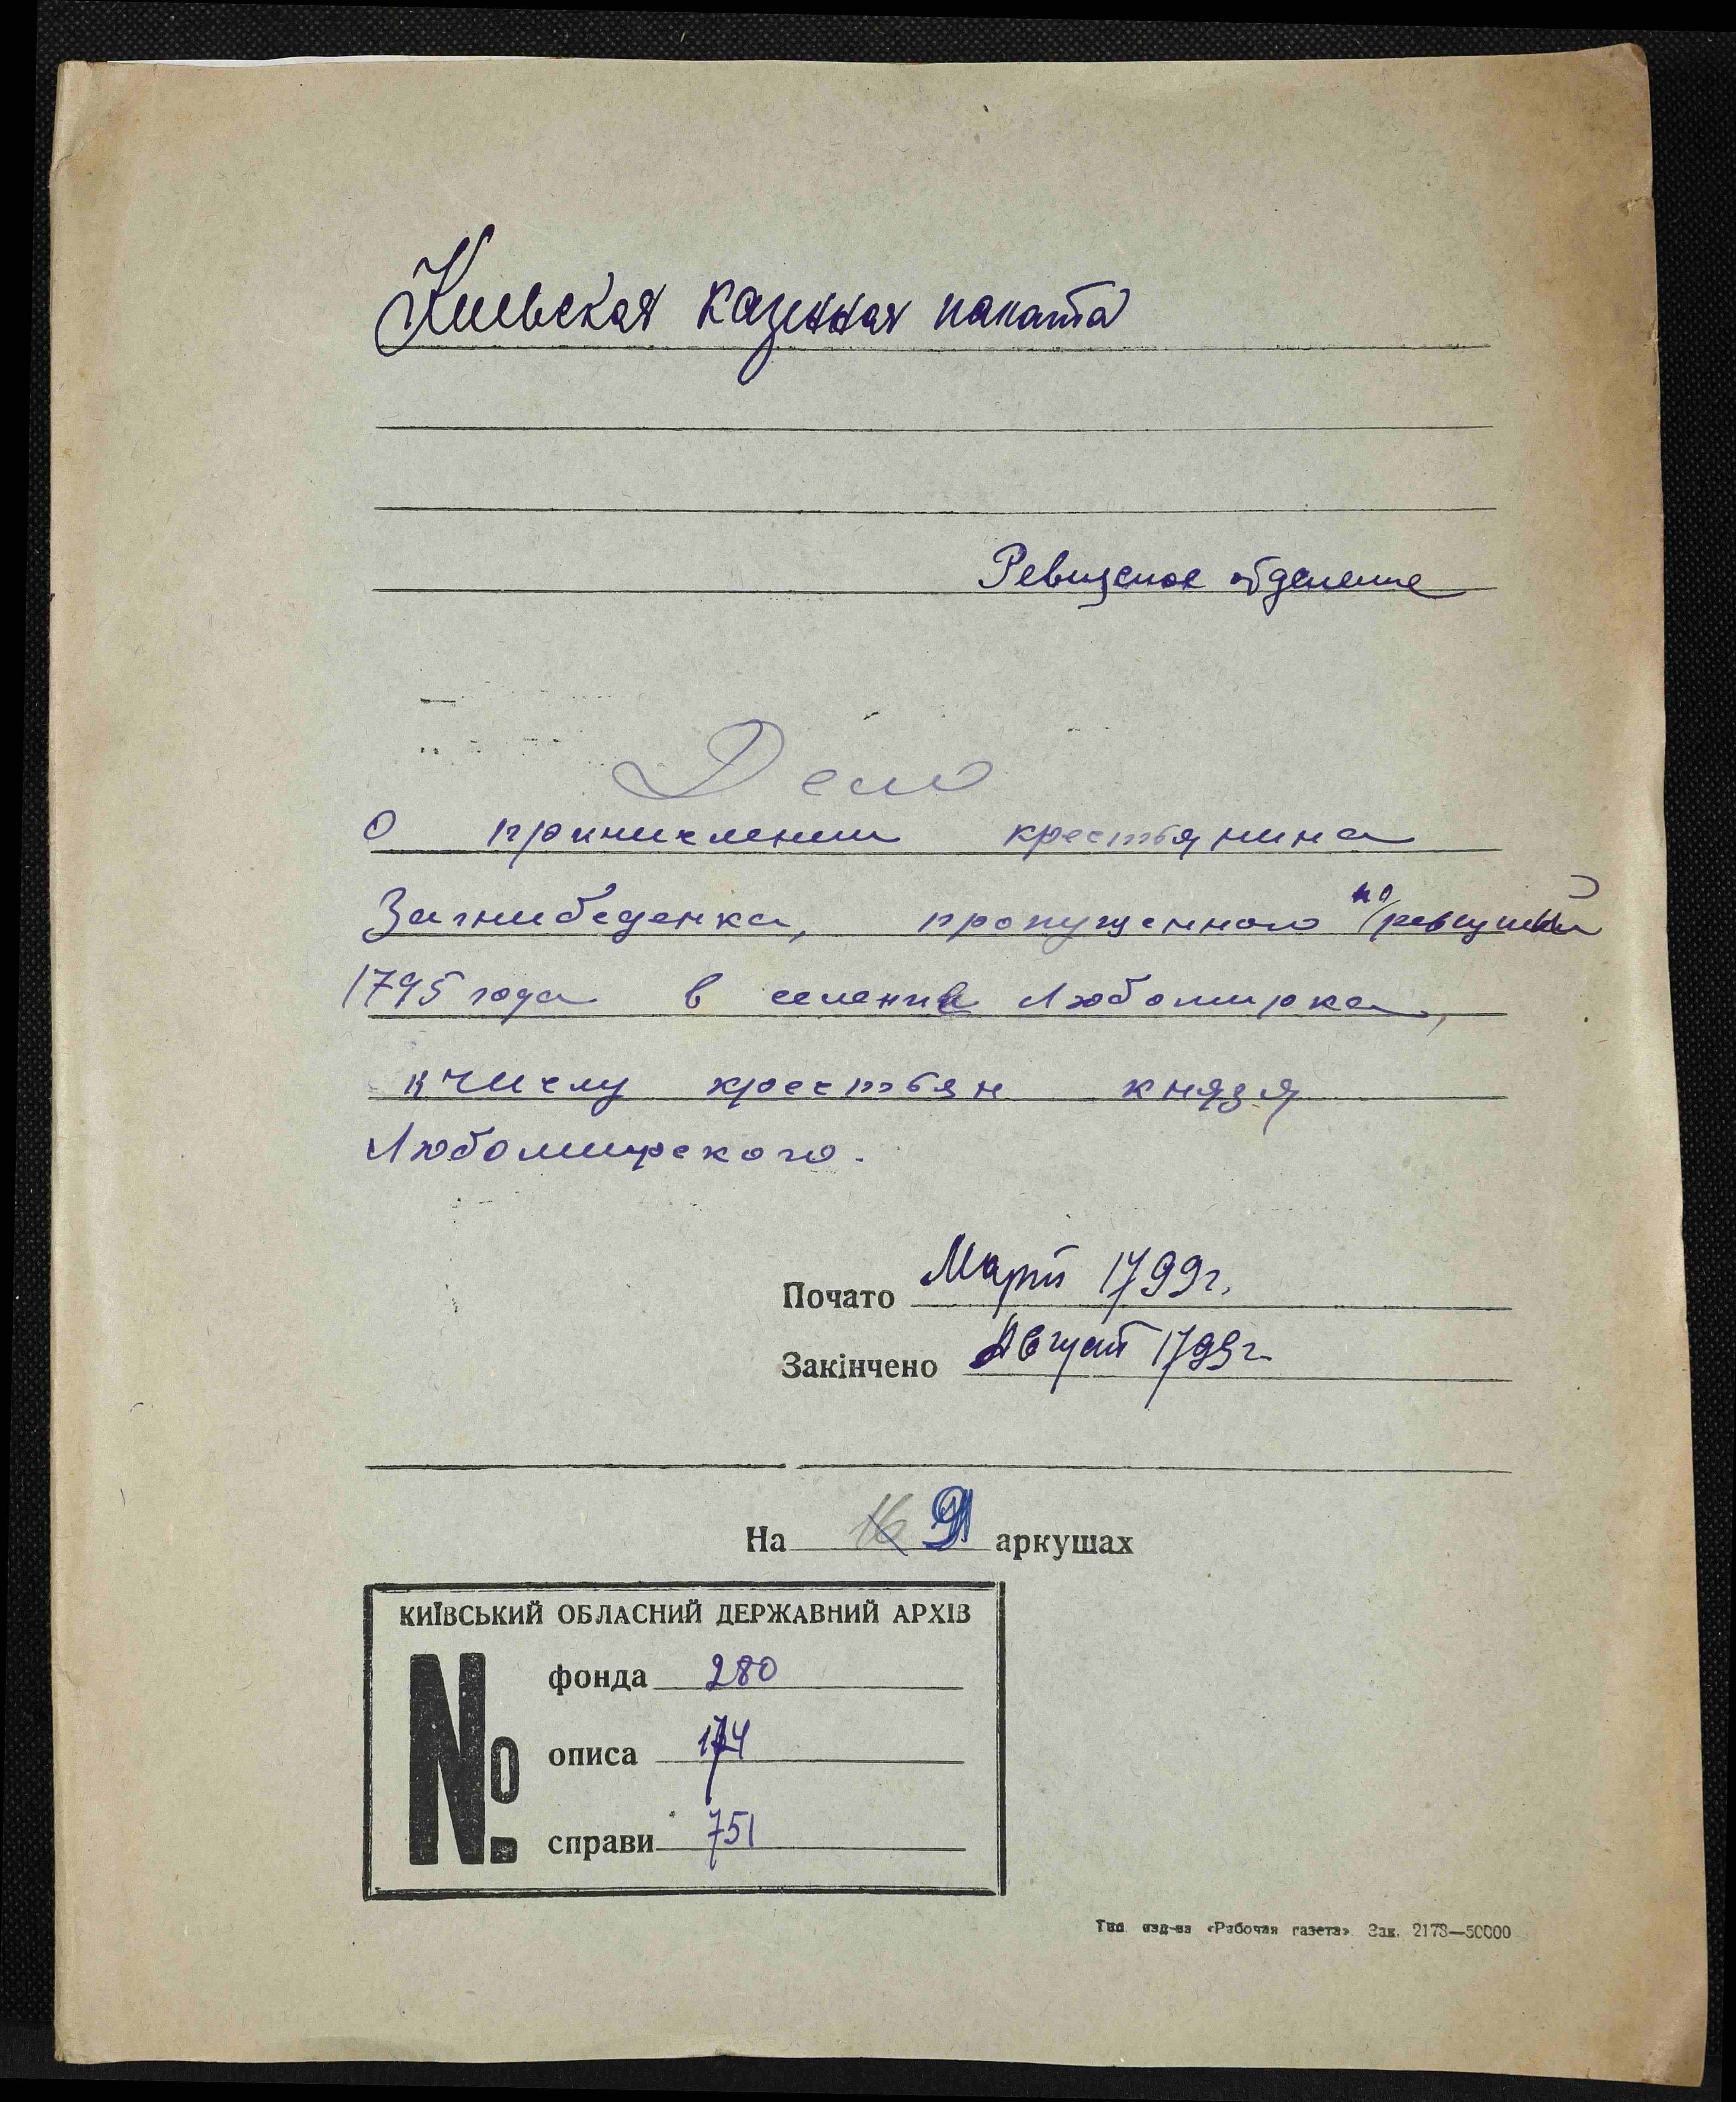 Киевская казенная палата
Ревизское отделение
Дело
О причислении крестьянина
Загнибеденка, пропущенного по ревизии
1795 года в селении Любомирка,
к числу крестьян князя
Любомирского.
Почато Март 1799г.
Закінчено Август 1799г.
На 16 9 аркушах
КИЇВСЬКИЙ ОБЛАСНИЙ ДЕРЖАВНИЙ АРХІВ
№
фонда 280
описа 174
справи 751
Тип. изд-ва «Рабочая газета» Зак. 2178—50000